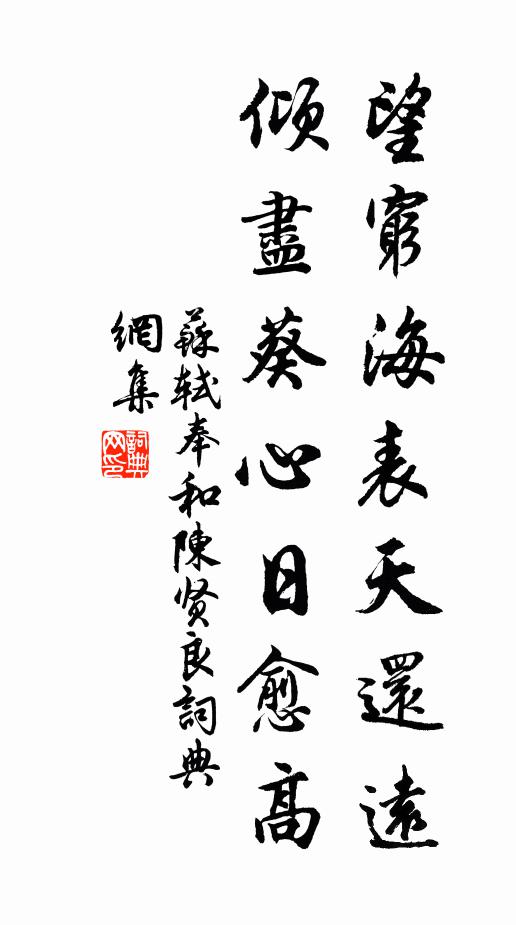 望窮海表天還遠
傾盡葵心日愈高
蘇軾奉和陳贤良詞典
網集
詞典
网印